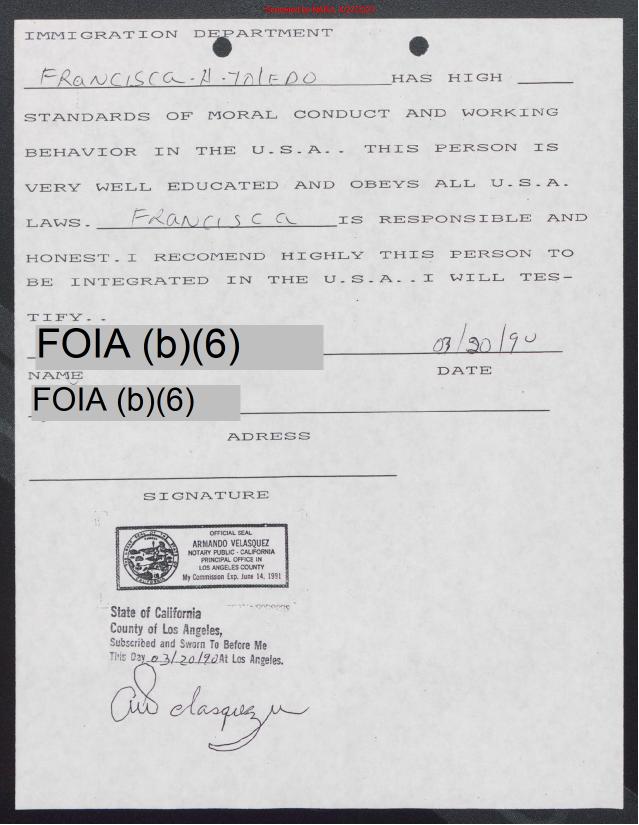 IMMIGRATION DEPARTMENT
FRANCISCA. H. TOLEDO HAS HIGH
STANDARDS OF MORAL CONDUCT AND WORKING
BEHAVIOR IN THE U.S.A.. THIS PERSON IS
VERY WELL EDUCATED AND OBEYS ALL U.S.A.
LAWS. FRANCISCA IS RESPONSIBLE AND
HONEST.I RECOMEND HIGHLY THIS PERSON TO
BE INTEGRATED IN THE U.S.A..I WILL TES-
TIFY..
FOIA (b)(6) 03/20/90
NAME DATE
FOIA (b)(6)
ADRESS
SIGNATURE
OFFICIAL SEAL
ARMANDO VELASQUEZ
NOTARY PUBLIC - CALIFORNIA
PRINCIPAL OFFICE IN
LOS ANGELES COUNTY
My Commission Exp. June 14, 1991
State of California
County of Los Angeles,
Subscribed and Sworn To Before Me
This Day 03/20/90 At Los Angeles.